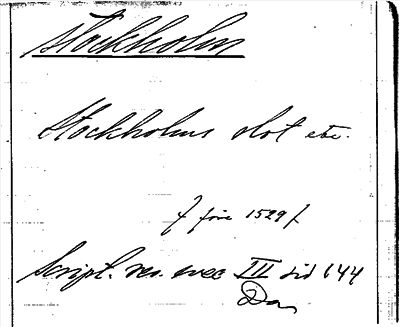 Stockholm
Stockholms slot etc.
/ före 1529 /
Script. res. svec III sid 144
Dan